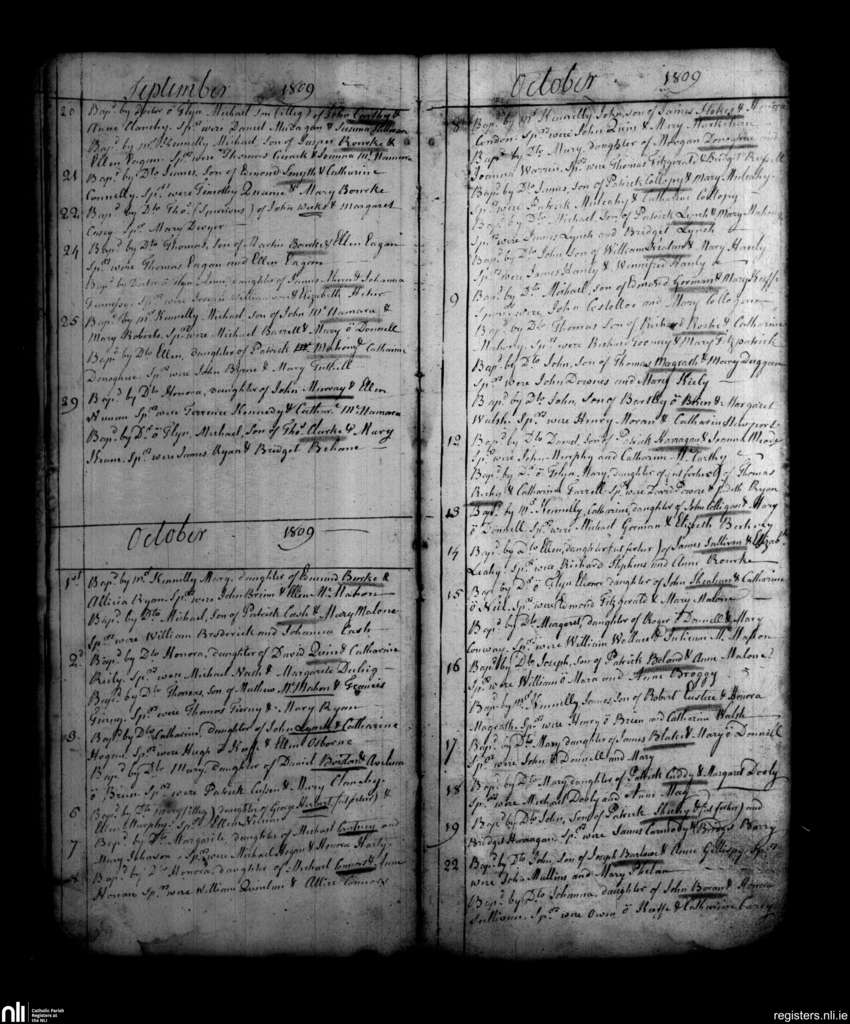 September 1809
20 Bapd. by Doctor ô Glyn Michael Son (illeg) of John Carthy &
Anne Clanchy. Sprs. were Daniel McDagan & Susanna
Bapd. by Mr. Kennelly Michael, Son of Rourke &
Ellen Fagan. Sprs. were Thomas & Joanna McNamara
21 Bapd. by Dto. James, Son of Edmond Smyth & Catharine
Connelly. Sprs. were Timothy & Mary Bourke
22 Bapd. by Dto. Thos. (Spurious) of John & Margaret
Casey Spr. Mary Dwyer
24 Bapd. by Dto. Thomas, Son of Martin Bourke & Ellen Eagan
Sprs. were Thomas Eagan and Ellen Eagan
Bapd. by Doctor ô Glyn daughter of James Ahern & Johanna
Sprs. were & Elizabeth
25 Bapd. by Mr. Kennelly Michael, Son of John McNamara &
Mary Roberts. Sprs. were Michael Barrett & Mary ô Donnell
Bapd. by Dto. Ellen, daughter of Patrick Mahony & Catharine
Donoghue. Sprs. were John Byrne & Mary Tuthill
29 Bapd. by Dto. Honora, daughter of John Murray & Ellen
Nunan Sprs. were Terrence Kennedy & Cathar. McNamara
Bapd. by Dr. ô Glyn, Michael, Son of Thos. Clarke & Mary
Sprs. were James Ryan & Bridget Behane
October 1809
1st Bapd. by Mr. Kennelly Mary, daughter of Edmund Burke &
Allicia Bryan. Sprs. were John Brien & Ellen McMahon
Bapd. by Dto. Michael, Son of Patrick Cash & Mary Malone
Sprs. were William Broderick and Johanna Cash
2d Bapd. by Dto. Honora, daughter of David Quin & Catharine
Reily. Sprs. were Michael Nash & Margarite
Bapd. by Dto. Thomas, Son of Mathew McMahon & Francis
Sprs. were Thomas Tierny & Mary Ryan
3 Bapd. by Dto. Catharine, daughter of John Lynch & Catharine
Hogan. Sprs. were Hugh ô & Ellen Osborne
Bapd. by Dto. Mary, daughter of Daniel Boilan &
ô Brien Sprs. were Patrick & Mary Clanchy
6 Bapd. by Dto. (illeg.) daughter of George (as fortior) &
Ellen Murphy. Spr. Ellen
7 Bapd. by Dto. Margarite, daughter of Michael and
Mary Sprs. were Michael Hogan & Honora Hasty
8 Bapd. by Dto. Honora, daughter of Michael & Anne
Honan Sprs. were William Quinlan & Allice Connors
October 1809
8 Bapd. by Mr. Kennelly John, son of James Stokes & Honora
Condon. Sprs. were John Quin & Mary
Bapd. by Dto. Mary, daughter of Morgan Donoghue and
Joanna Warren. Sprs. were Thomas Fitzgerald & Bridget
Bapd. by Dto. James, Son of Patrick Collopy & Mary Mulcahy
Sprs. were Patrick Mulcahy & Catharine Collopy
Bapd. by Dto. Michael Son of Patrick Lynch & Mary
Sprs. were James Lynch and Bridget Lynch
Bapd. by Dto. John Son of William & Mary Hanly
Sprs. were James Hanly & Winnifred Hanly
9 Bapd. by Dto. Michael, Son of Edmond Gorman & Mary
Sprs. were John Costelloe and Mary
Bapd. by Dto. Thomas Son of Richard Roche & Catharine
Sprs. were Richard & Mary Fitzpatrick
Bapd. by Dto. John, Son of Thomas Magrath & Mary Duggan
Sprs. were John Downes and Mary Kiely
Bapd. by Dto. John, Son of Bartley ô Brien & Margaret
Walsh. Sprs. were Henry Moran & Catharin Newport
12 Bapd. by Dto. David Son of Patrick Hanagan &
Sprs. were John Murphy and Catharine McCarthy
Bapd. by Dr. ô Glyn, Mary, daughter of (as fortior) of Thomas
& Catharine Farrell. Sprs. were David Power & Judith Ryan
13 Bapd. by Mr. Kennelly, Catharine, daughter of John Colligan & Mary
ô Donnell. Sprs. were Michael Gorman & Elizabeth
14 Bapd. by Dto. Ellen, daughter (as fortior) of James Sullivan & Elizabth.
Leahy. Sprs. were Richard Hopkins and Anne Rourke
15 Bapd. by Dr. ô Glyn Elenor daughter of John Sheahan & Catharine
ô Neil. Sprs. were Edmond Fitzgerald & Mary Malone
Bapd. by Dto. Margaret, daughter of Roger ô Donnell & Mary
Conway. Sprs. were William Wallace & McMahon
16 Bapd. by Dto. Joseph, Son of Patrick Boland & Anne Malone
Sprs. were William ô Mara and Anne Broggy
Bapd. by Mr. Kennelly James, Son of Robert Eustice & Honora
Magrath. Sprs. were Henry ô Brien and Catharine Walsh
17 Bapd. by Dto. Mary daughter of James Blake & Mary ô Donnell
Sprs. were John ô Donnell and Mary
18 Bapd. by Dto. Mary daughter of Patrick Cuddy & Margaret Dooly
Sprs. were Michael Dooly and Anne May
19 Bapd. by Dto. John, Son of Patrick Sheehy (as fortior) and
Bridget Hannagan. Sprs. were James Carmody & Bridget Barry
22 Bapd. by Dto. John, Son of Joseph Barlow & Anne Gillespy. Sprs.
were John Mullins and Mary Phelan
Bapd. by Dto. Johanna, daughter of John Boran & Honora
Sullivan. Sprs. were Owen ô Keeffe & Catharine Carey
nli
Catholic Parish
Registers at
the NLI
registers.nli.ie